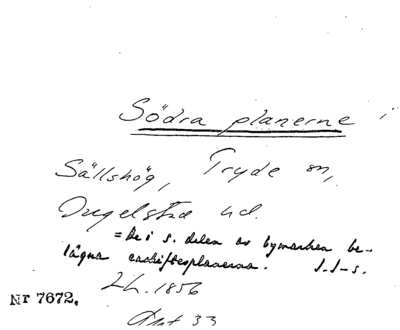 Södra planerne i
Sällshög, Tryde sn,
Ingelstad hd.
= De i s. delen av bymarken be-
lägna enskiftesplanerna. J.J-s.
LL. 1856
Nr 7672.
Akt 33